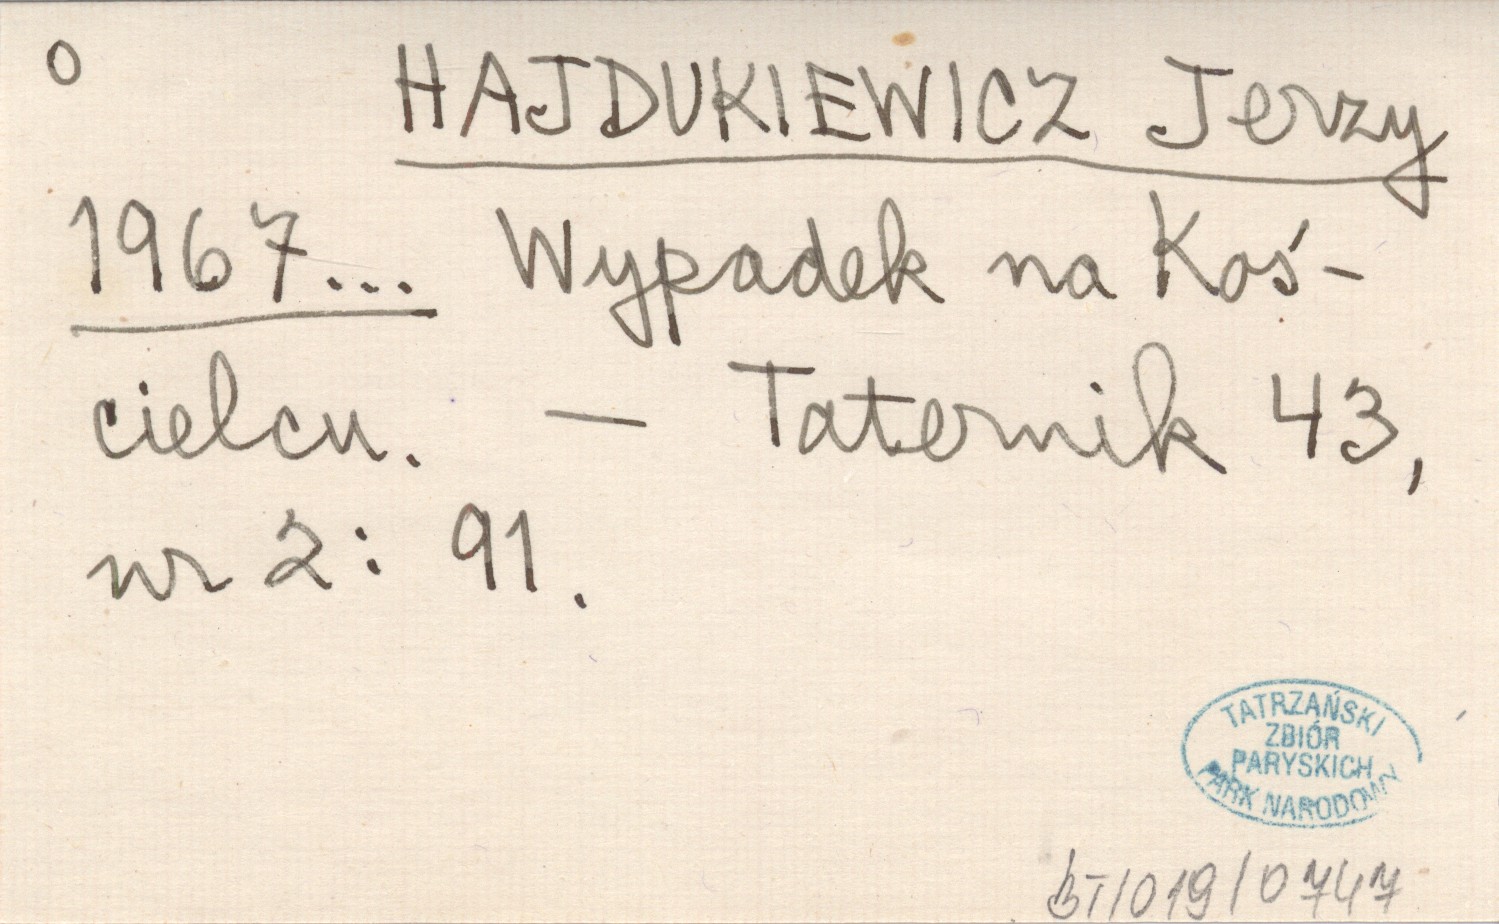 o HAJDUKIEWICZ Jerzy
1967... Wypadek na Koś-
cielcu. — Taternik 43,
nr 2: 91.
TATRZAŃSKI
ZBIÓR
PARYSKICH
PARK NARODOWY
BT/019/0747